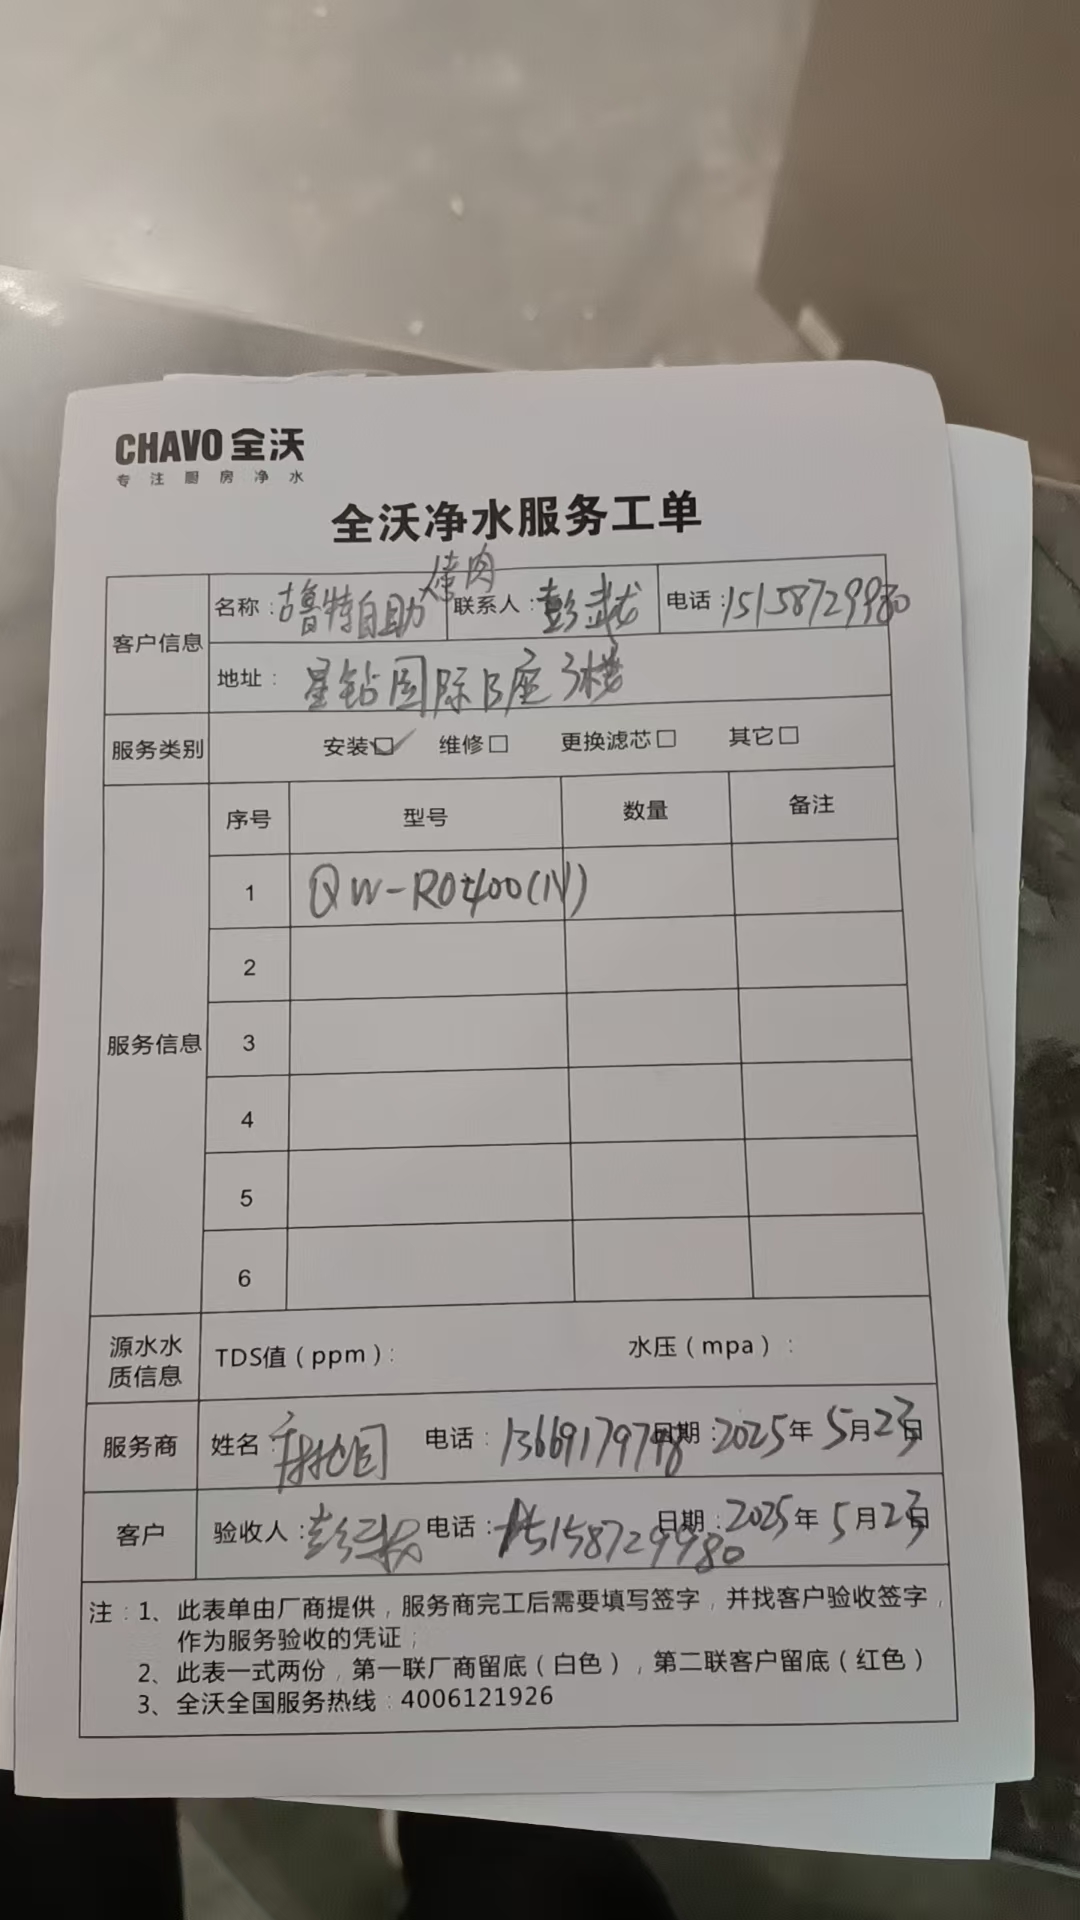 CHAVO 全沃
专注厨房净水
全沃净水服务工单
客户信息 名称：古鲁特自助烤肉 联系人：彭武龙 电话：15158729980
地址：星钻国际B座3楼
服务类别 安装☑ 维修□ 更换滤芯□ 其它□
服务信息 序号 型号 数量 备注
1 QW-RO400(N)
2
3
4
5
6
源水水质信息 TDS值（ppm）： 水压（mpa）：
服务商 姓名： 电话：13669179798 日期：2025年5月23日
客户 验收人：彭 电话：15158729980 日期：2025年5月23日
注：1、此表单由厂商提供，服务商完工后需要填写签字，并找客户验收签字，
作为服务验收的凭证；
2、此表一式两份，第一联厂商留底（白色），第二联客户留底（红色）
3、全沃全国服务热线：4006121926